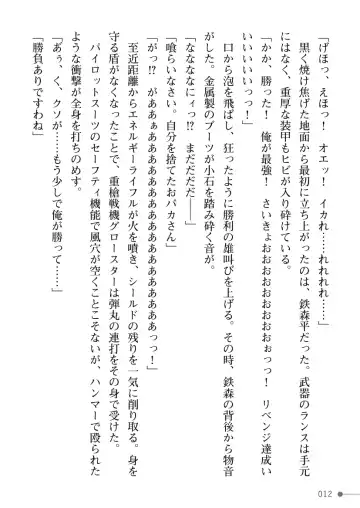 「げほっ、えほっ！　オエッ！　イカれ……れれれれ……！」
　黒く焼け焦げた地面から最初に立ち上がったのは、鉄森平だった。武器のランスは手元
にはなく、重厚な装甲にもヒビが入り砕けている。
「かか、勝った！　俺が最強！　さいきょおおおおおおおおぉっっ！　リベンジ達成い
いいいいいっっ！」
　口から泡を飛ばし、狂ったように勝利の雄叫びを上げる。その時、鉄森の背後から物音
がした。金属製のブーツが小石を踏み砕く音が。
「なななななにィ!?　まだだだだ――」
「喰らいなさい。自分を捨てたおバカさん」
「がっ!?　がああぁあああああああああああああっっ！」
　至近距離からエネルギーライフルが火を噴き、シールドの残りを一気に削り取る。身を
守る盾がなくなったことで、重槍戦機グロースターは弾丸の連打をその身で受けた。
　パイロットスーツのセーフティ機能で風穴が空くことこそないが、ハンマーで殴られた
ような衝撃が全身を打ちのめす。
「あぅ、く、クソが……もう少しで俺が勝って……」
「勝負ありですわね」
012